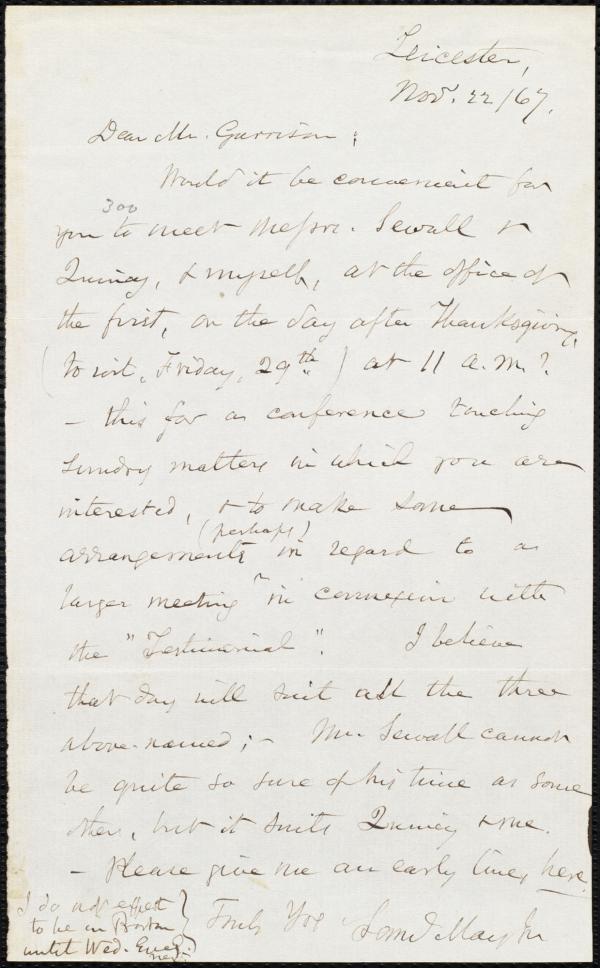 Leicester,
Nov. 22/67.
Dear Mr. Garrison;
Would it be convenient for
300
you to meet Messrs. Sewall &
Quincy, & myself, at the office of
the first, on the day after Thanksgiving,
(to wit, Friday, 29th.) at 11 a.m.?
– this for a conference touching
sundry matters in which you are
interested, & to make some
arrangements (perhaps) in regard to a
larger meeting in connexion with
the "Testimonial". I believe
that day will suit all the three
above-named; – Mr. Sewall cannot
be quite so sure of his time as some
others, but it suits Quincy & me.
– Please give me an early line, here.
Truly Yrs Saml. May Jr
I do not expect
to be in Boston
until Wed. Eveg.
next.